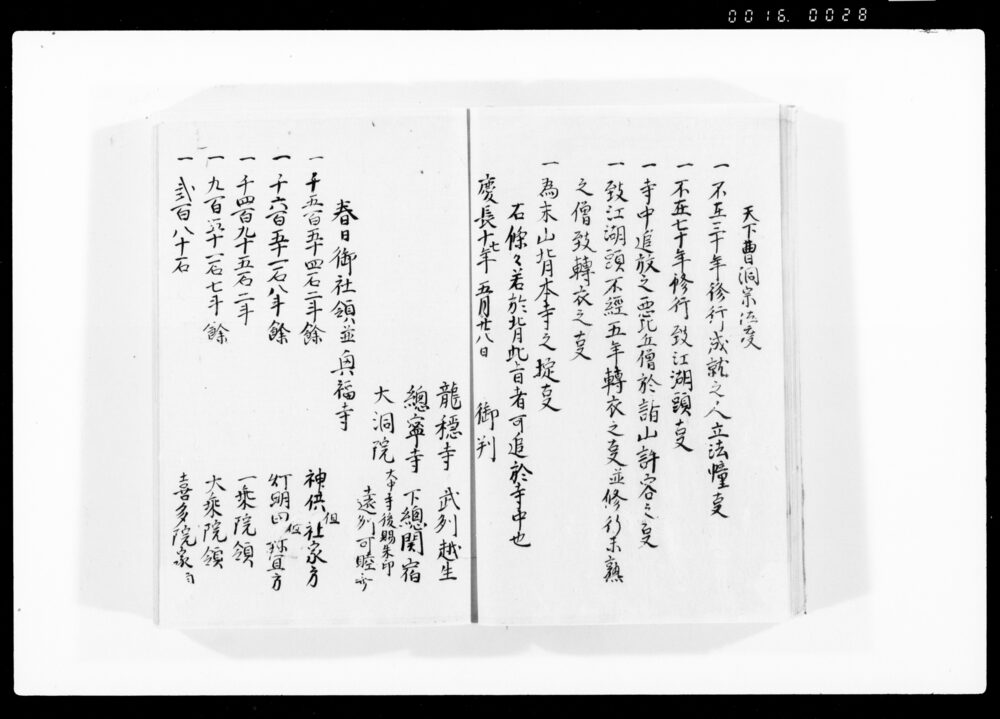 0016. 0028
天下曹洞宗法度
一 不至三十年修行成就之人立法幢叓
一 不至七十年修行致江湖頭叓
一 寺中追放之悪比丘僧於諸山許容之叓
一 致江湖頭不經五年轉衣之叓並修行未熟
之僧致轉衣之叓
一 為末山背本寺之掟叓
右條々若於背此旨者可追於寺中也
慶長十七年五月廿八日 御判
龍穩寺 武列越生
總寧寺 下總関宿
大洞院 大甲寺後賜朱印 遠列可睡斎
春日御社領並興福寺
一 千五百五十四石二斗餘 神供但社家方
一 千六百五十一石八斗餘 灯明田但祢宜方
一 千四百九十五石二斗 一乘院領
一 九百六十一石七斗餘 大乘院領
一 弐百八十石 喜多院家